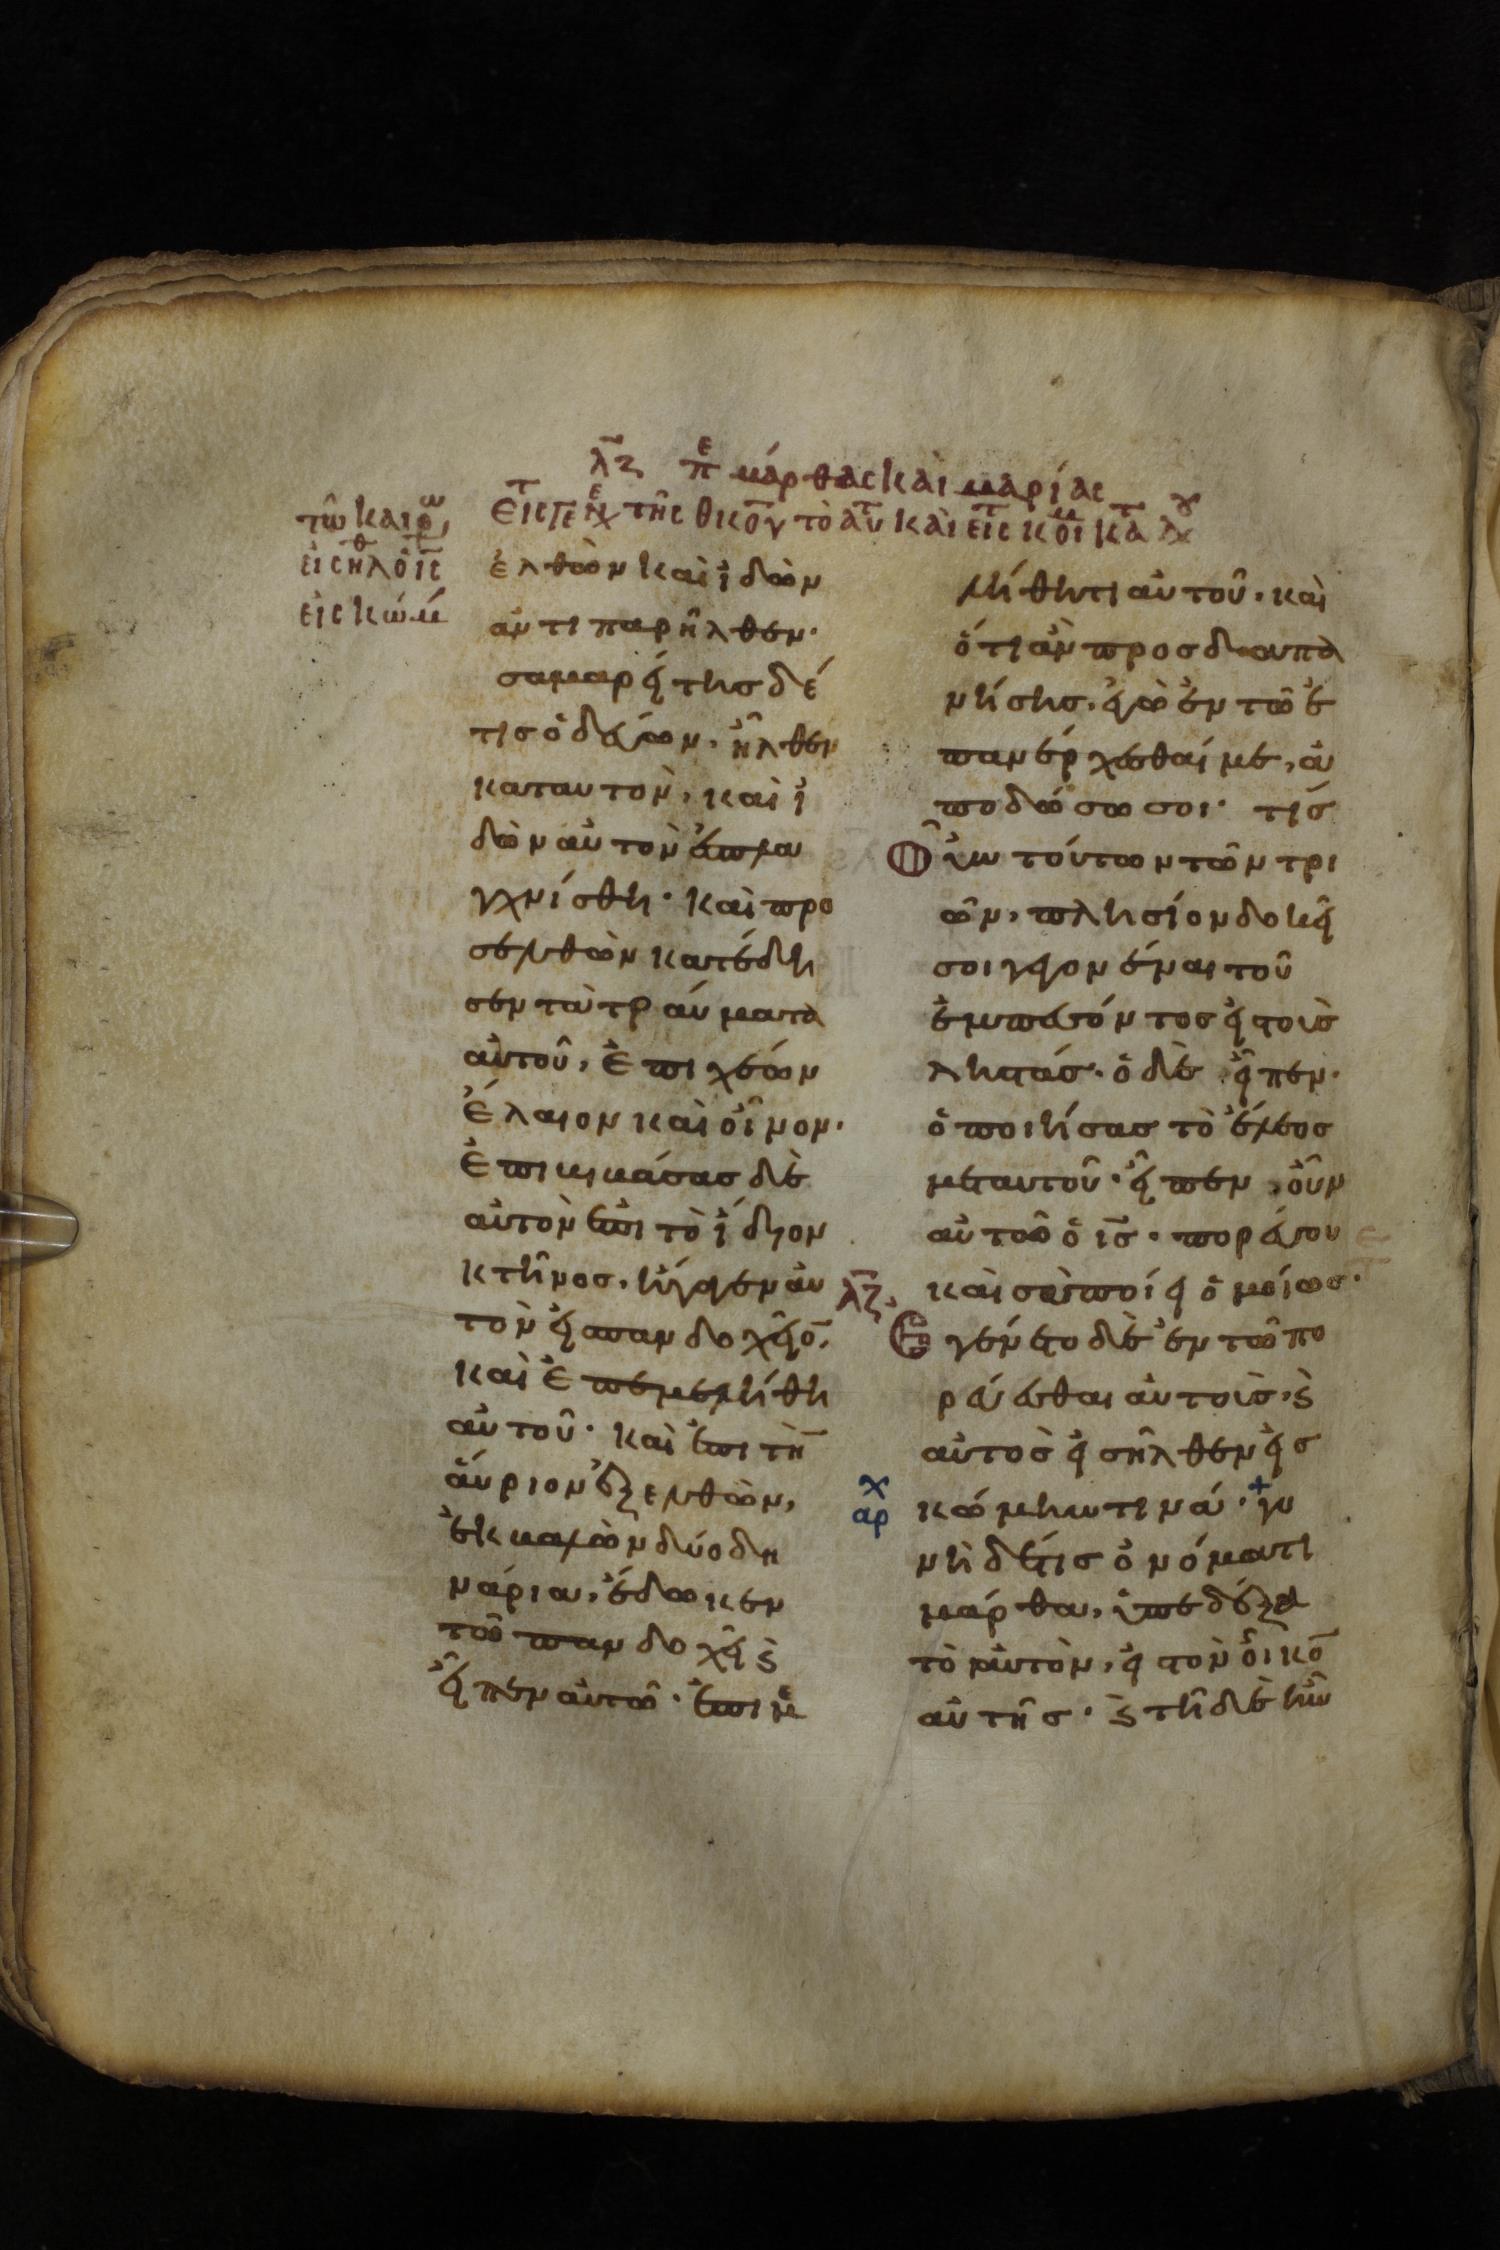 λζ πε μάρθας καὶ μαρίας
τῶ καιρῶ
εἰσῆλθ ὁ ις
εἰς κώμ
ἐλθὼν καὶ ἰδὼν
ἀντιπαρῆλθεν·
σαμαρείτης δέ
τις ὁδεύων, ἦλθεν
κατ αυτὸν, καὶ ἰ
δὼν αὐτὸν ἐσπλα
γχνίσθη· καὶ προ
σελθὼν κατέδη
σεν τὰ τραύματα
αὐτοῦ, ἐπιχέων
ἔλαιον καὶ οἶνον·
ἐπικικάσας δὲ
αὐτὸν ἐπι τὸ ἴδιον
κτῆνος, ἤγαγεν αυ
τὸν εἰς πανδοχεῖο̄,
καὶ ἐπεμελήθη
αὐτοῦ· καὶ ἐπι τὴν
αὔριον ἐξελθὼν,
ἐκβαλὼν δύο δη
νάρια, ἔδωκεν
τῶ πανδοχεῖ ϗ
εἶπεν αὐτῶ· ἐπιμε
λήθητι αὐτοῦ· καὶ
ὅτι ἂν προσδαπα
νήσης, ἐγὼ ἐν τῶ ἐ
πανέρχεσθαί με, ἀ
ποδώσω σοι· τίς
οὖν τούτων τῶν τρι
ῶν, πλησίον δοκεῖ
σοι γεγονέναι τοῦ
ἐμπεσόντος εἰς τοὺς
ληστάς· ὁ δὲ εἶπεν·
ὁ ποιήσας τὸ ἔλεος
μετ αυτοῦ· εἶπεν οὖν
αὐτῶ ὁ ις· πορεύου
καὶ σὺ ποίει ὁμοίως·
λζ
Εγένετο δὲ ἐν τῶ πο
ρεύεσθαι αὐτοὺς, ϗ
αὐτὸς εἰσῆλθεν εἰς
χ
αρ
κώμην τινά· γυ
νὴ δέ τις ὀνόματι
μάρθα, ὑπεδέξα
το αὐτὸν, εἰς τὸν οἶκο̄
αὐτῆς· ϗ τῆδε ἦν